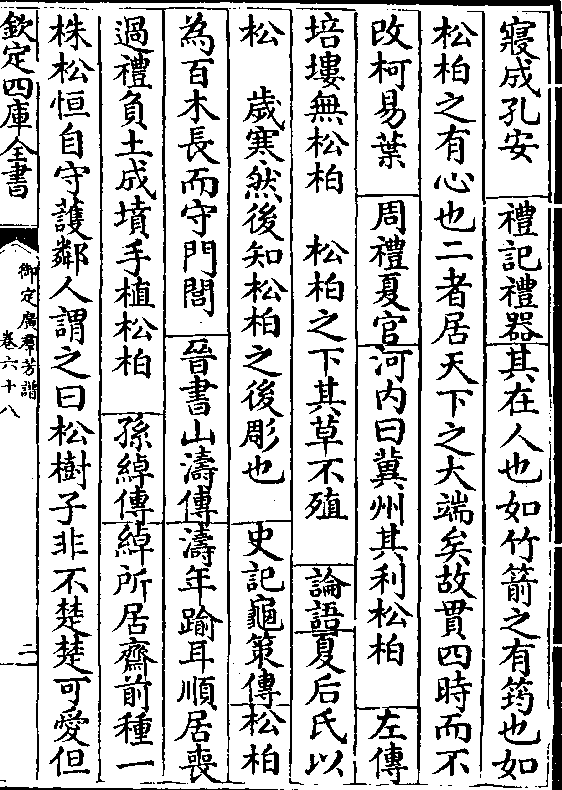 寢成孔安　禮記禮器其在人也如竹箭之有筠也如
松柏之有心也二者居天下之大端矣故貫四時而不
改柯易葉　周禮夏官河内曰冀州其利松柏　左傳
培塿無松柏　松柏之下其草不殖　論語夏后氏以
松　歲寒然後知松柏之後彫也　史記龜策傳松柏
為百木長而守門閭　晉書山濤傳濤年踰耳順居喪
過禮負土成墳手植松柏　孫綽傳綽所居齋前種一
株松恒自守護鄰人謂之曰松樹子非不楚楚可愛但
欽定四庫全書
御定廣羣芳譜
卷六十八
二